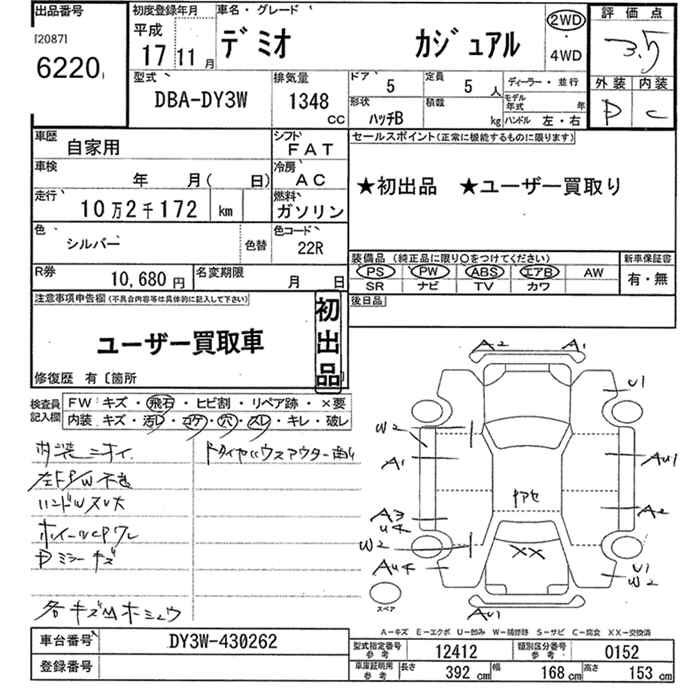 出品番号 初度登録年月 車名・グレード 評価点
[2087] 6220
平成 17 11月 デミオ カジュアル 2WD・4WD 3.5
外装 内装
D C
型式 DBA-DY3W
排気量 1348 CC
ドア 5 定員 5人 ディーラー・並行
形状 ハッチB 積載 kg モデル年式 年 ハンドル 左・右
車歴 自家用 シフト FAT
セールスポイント(正常に機能するものに限ります)
車検 年 月( 日) 冷房 AC
★初出品 ★ユーザー買取り
走行 10万2千172 km 燃料 ガソリン
色 シルバー 色替 色コード 22R
装備品(純正品に限り○をつけてください) 新車保証書
PS PW ABS エアB AW 有・無
SR ナビ TV カワ
R券 10,680円 名変期限 月 日
後日品
注意事項申告欄(不具合内容等は具体的に記入して下さい)
ユーザー買取車
初出品
修復歴 有〔箇所
検査員記入欄
FW:キズ・飛石・ヒビ割・リペア跡・×要
内装・キズ・汚レ・コゲ・穴・スレ・キレ・破レ
内装ニオイ
左FP/W不良
ハンドルスレ大
Dミラーキズ
A2 A1
U1
W2
A1 AU1
ヤアセ
A3 A2
U4
W2 XX
AU4 U1
W2
AU1
スペア
A-キズ E-エクボ U-凹み W-補修跡 S-サビ C-腐食 XX-交換済
車台番号 DY3W-430262
型式指定番号参考 12412 類別区分番号参考 0152
登録番号
車庫証明用参考 長さ 392cm 幅 168cm 高さ 153cm